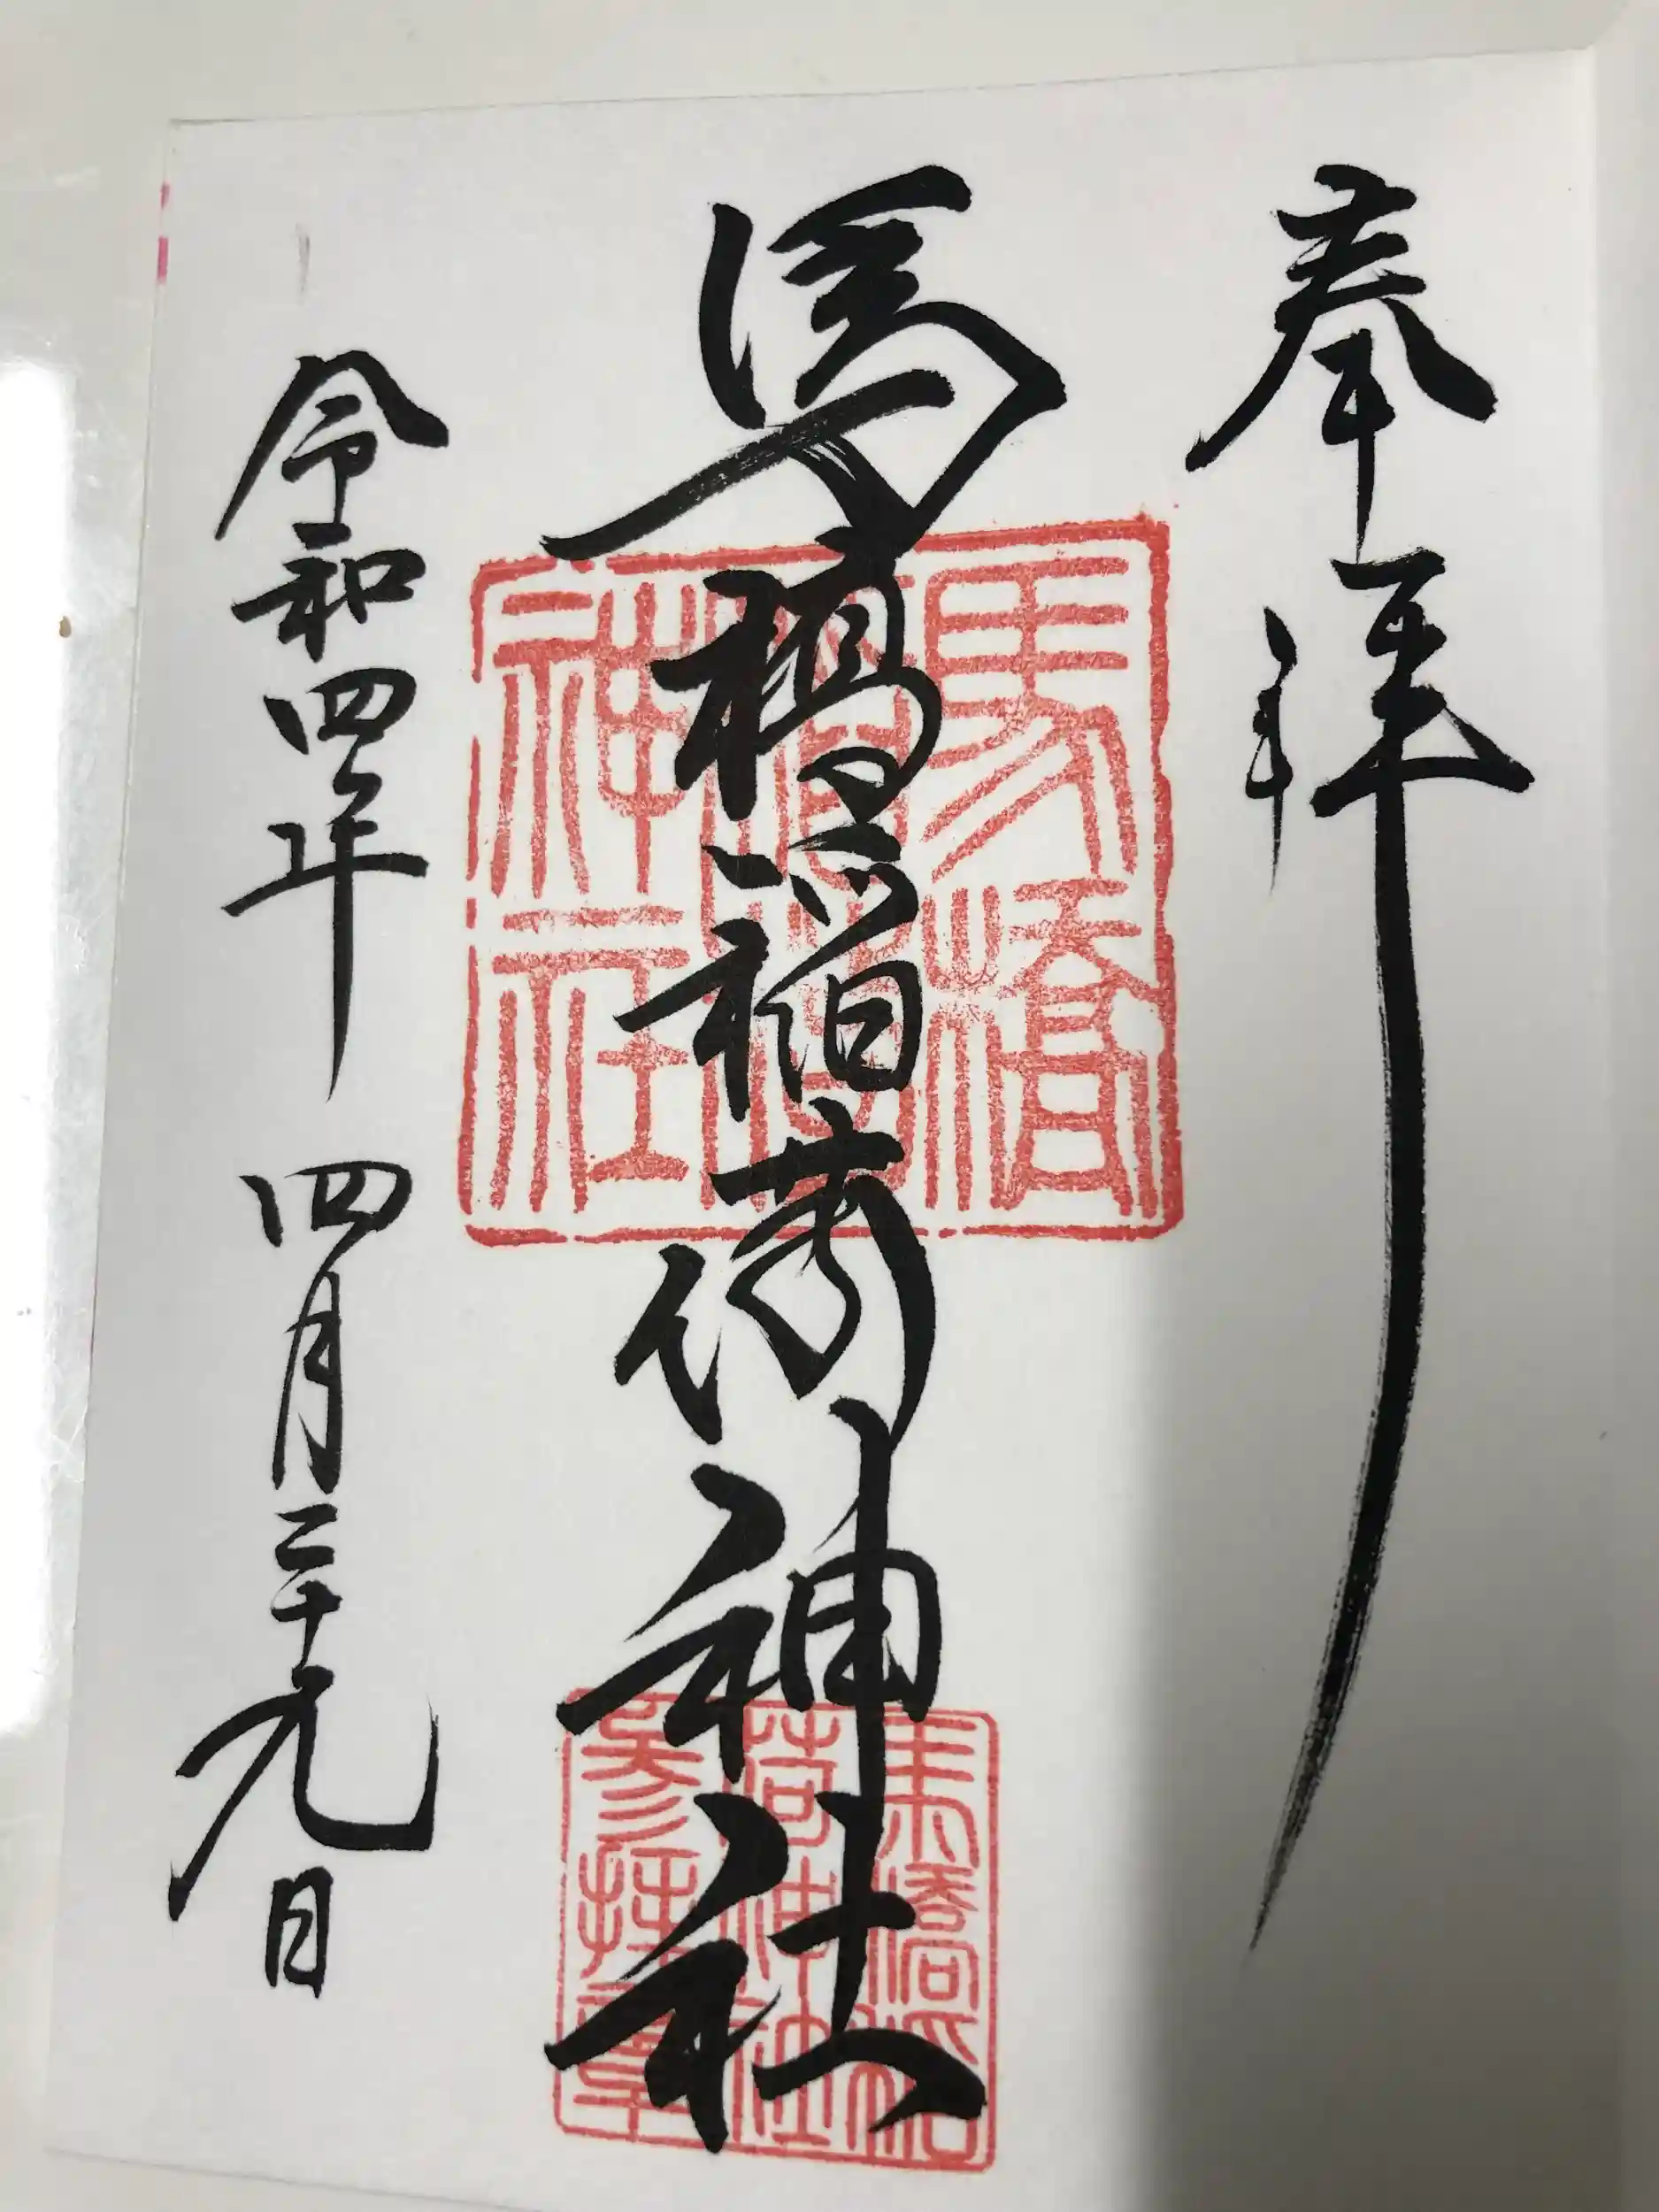 奉拝
馬橋稲荷神社
令和四年 四月二十九日
馬橋
稲荷
神社
馬橋稲
荷神社
参拝章